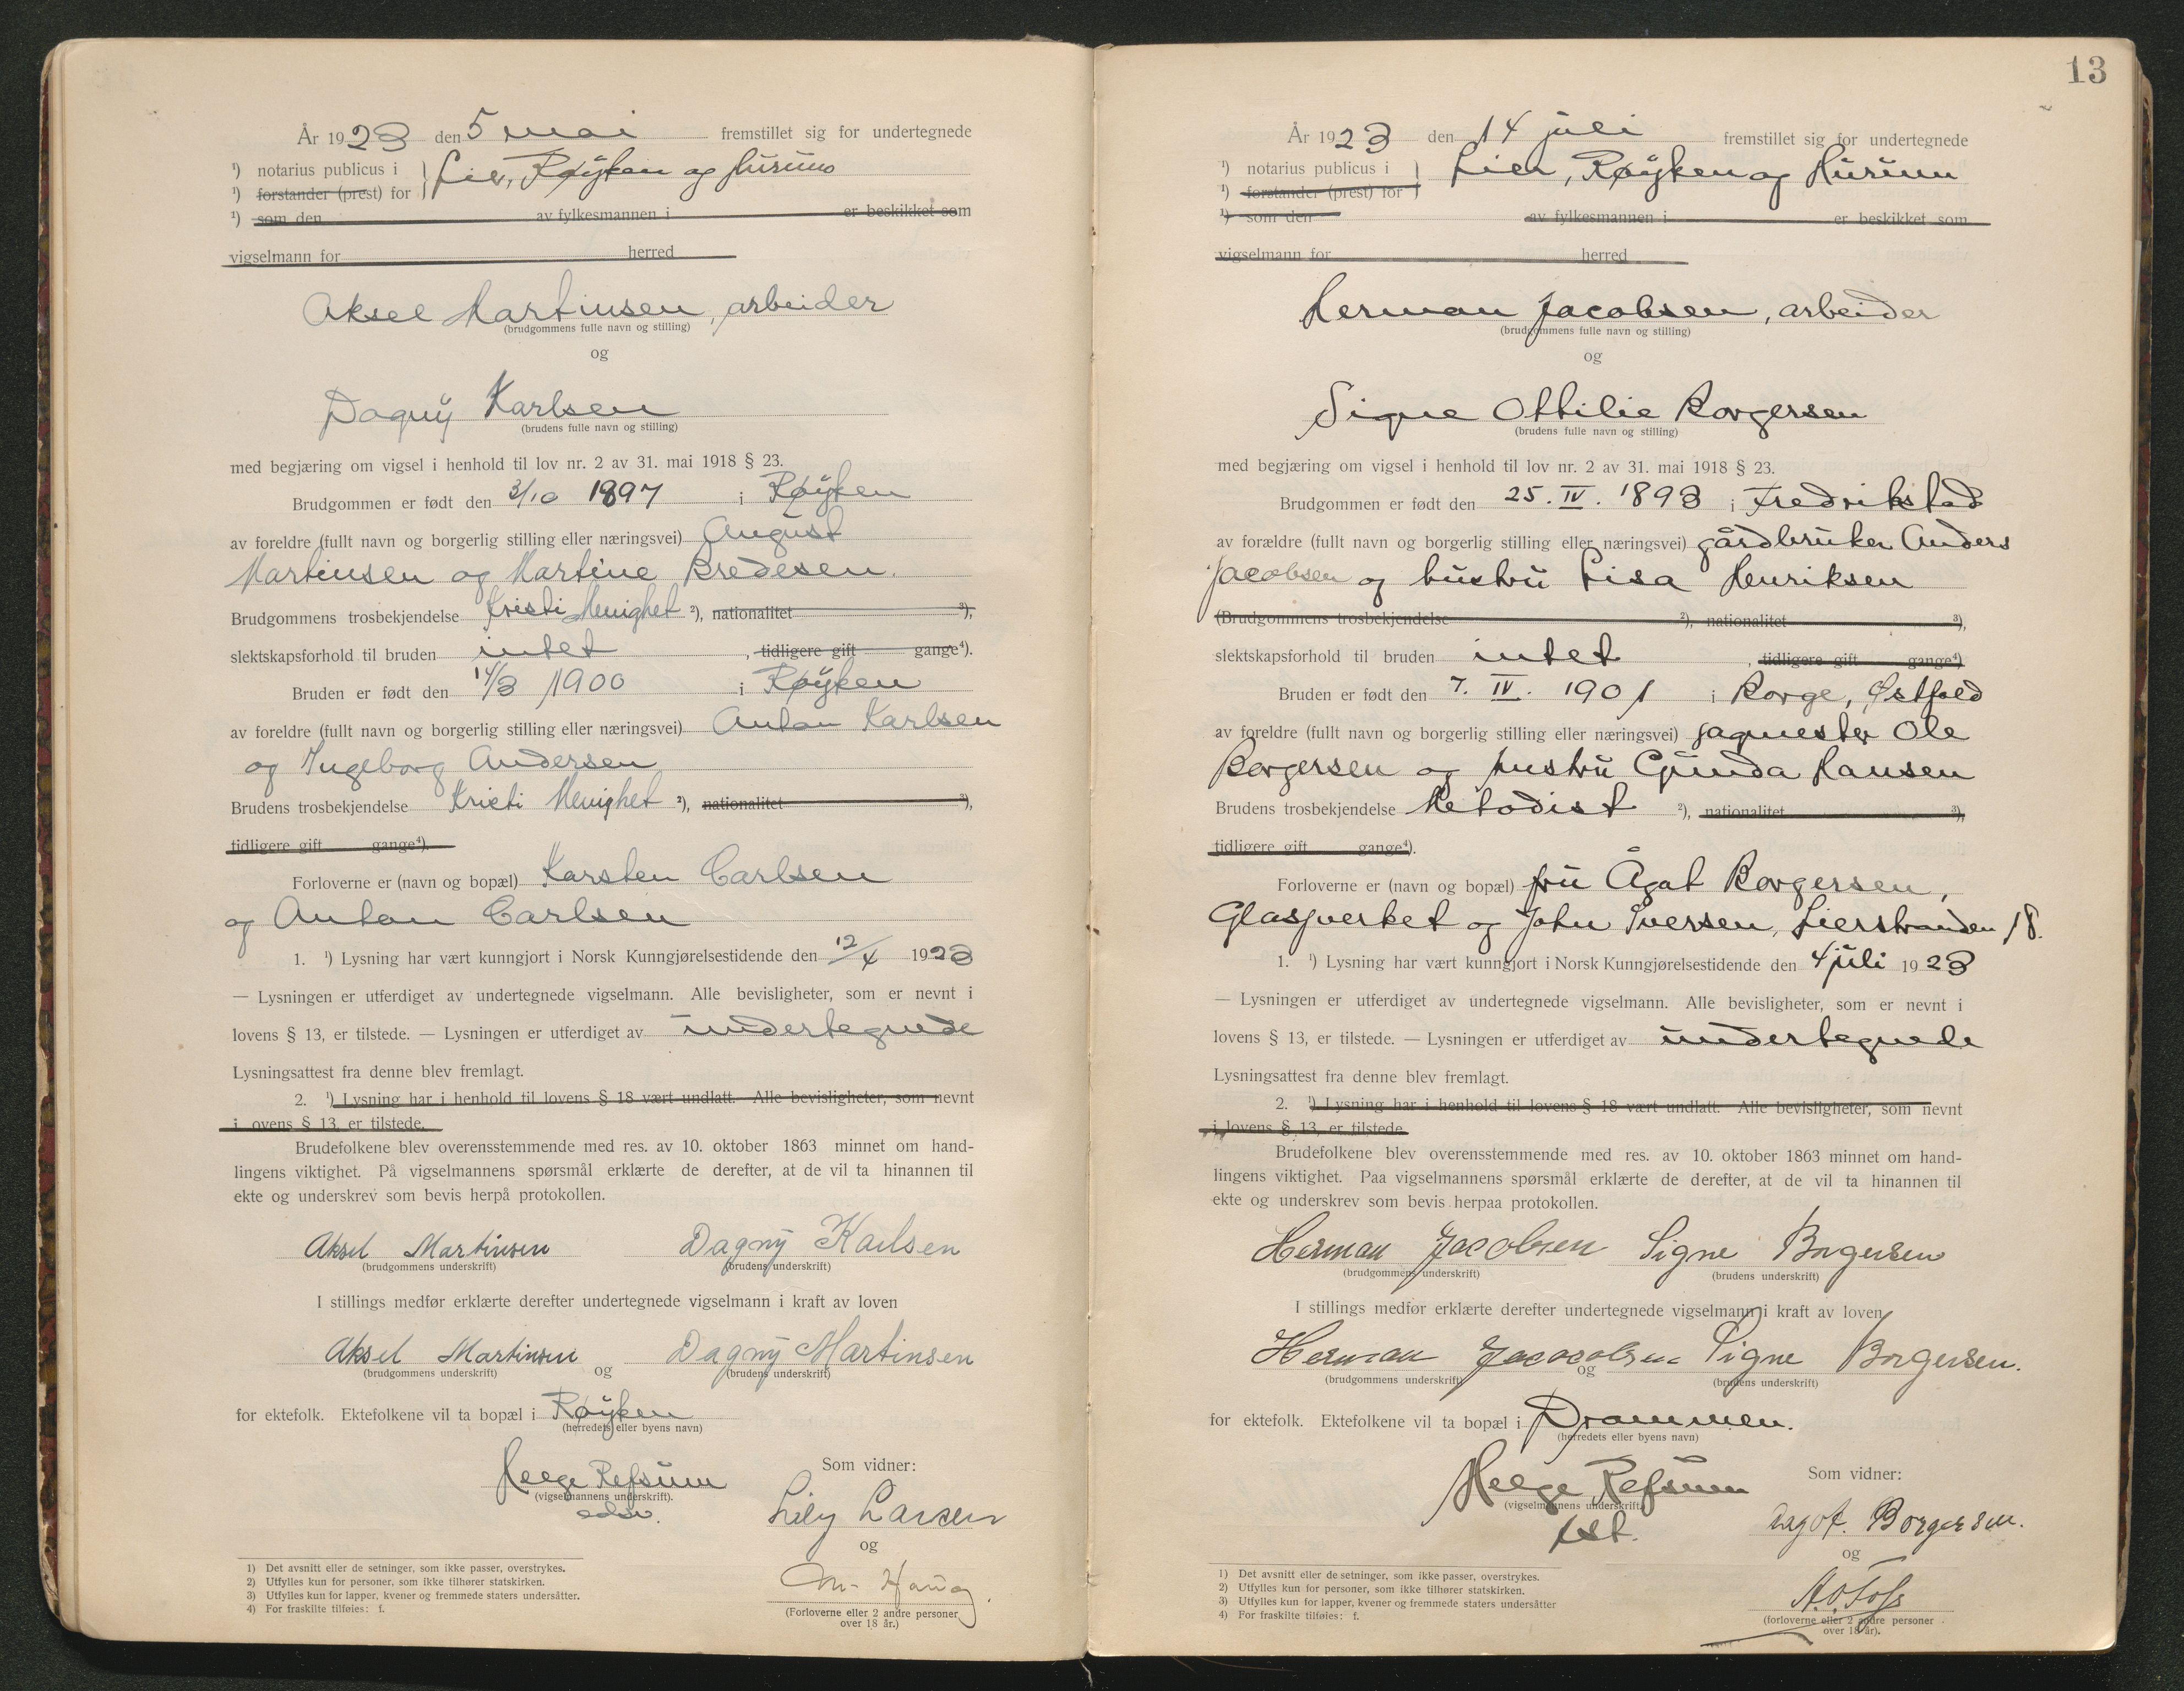 År 1923 den 5 mai fremstillet sig for undertegnede
¹) notarius publicus i } Lier, Røyken og Hurum
¹) forstander (prest) for
¹) som den av fylkesmannen i er beskikket som
vigselmann for herred
Aksel Martinsen, arbeider
(brudgommens fulle navn og stilling)
og
Dagny Karlsen
(brudens fulle navn og stilling)
med begjæring om vigsel i henhold til lov nr. 2 av 31. mai 1918 § 23.
Brudgommen er født den 3/10 1897 i Røyken
av foreldre (fullt navn og borgerlig stilling eller næringsvei) August
Martinsen og Martine Bredesen.
Brudgommens trosbekjendelse Kristi Menighet ²), nationalitet ³),
slektskapsforhold til bruden intet, tidligere gift gange⁴).
Bruden er født den 14/3 1900 i Røyken
av foreldre (fullt navn og borgerlig stilling eller næringsvei) Anton Karlsen
og Ingeborg Andersen
Brudens trosbekjendelse Kristi Menighet ²), nationalitet ³),
tidligere gift gange⁴).
Forloverne er (navn og bopæl) Karsten Carlsen
og Anton Carlsen
1. ¹) Lysning har vært kunngjort i Norsk Kunngjørelsestidende den 12/4 1923
— Lysningen er utferdiget av undertegnede vigselmann. Alle bevisligheter, som er nevnt i
lovens § 13, er tilstede. — Lysningen er utferdiget av undertegnede
Lysningsattest fra denne blev fremlagt.
2. ¹) Lysning har i henhold til lovens § 18 vært undlatt. Alle bevisligheter, som nevnt
i lovens § 13, er tilstede.
Brudefolkene blev overensstemmende med res. av 10. oktober 1863 minnet om hand-
lingens viktighet. På vigselmannens spørsmål erklærte de derefter, at de vil ta hinannen til
ekte og underskrev som bevis herpå protokollen.
Aksel Martinsen Dagny Karlsen
(brudgommens underskrift) (brudens underskrift)
I stillings medfør erklærte derefter undertegnede vigselmann i kraft av loven
Aksel Martinsen og Dagny Martinsen
(brudgommens underskrift) (brudens underskrift)
for ektefolk. Ektefolkene vil ta bopæl i Røyken
(herredets eller byens navn)
Helge Refsum
(vigselmannens underskrift).
Som vidner:
Lily Larsen
og
M. Haug
(Forloverne eller 2 andre personer
over 18 år.)
1) Det avsnitt eller de setninger, som ikke passer, overstrykes.
2) Utfylles kun for personer, som ikke tilhører statskirken.
3) Utfylles kun for lapper, kvener og fremmede staters undersåtter.
4) For fraskilte tilføies: f.
13
År 1923 den 14 juli fremstillet sig for undertegnede
¹) notarius publicus i } Lier, Røyken og Hurum
¹) forstander (prest) for
¹) som den av fylkesmannen i er beskikket som
vigselmann for herred
Herman Jacobsen, arbeider
(brudgommens fulle navn og stilling)
og
Signe Ottilie Borgersen
(brudens fulle navn og stilling)
med begjæring om vigsel i henhold til lov nr. 2 av 31. mai 1918 § 23.
Brudgommen er født den 25. IV. 1893 i Fredrikstad
av forældre (fullt navn og borgerlig stilling eller næringsvei) gårdbruker Anders
Jacobsen og hustru Lisa Henriksen
(Brudgommens trosbekjendelse ²), nationalitet ³),
slektskapsforhold til bruden intet, tidligere gift gange⁴)
Bruden er født den 7. IV. 1901 i Borge, Østfold
av foreldre (fullt navn og borgerlig stilling eller næringsvei) sagmester Ole
Borgersen og hustru Gunda Hansen
Brudens trosbekjendelse Metodist ²), nationalitet ³),
tidligere gift gange⁴).
Forloverne er (navn og bopæl) fru Ågot Borgersen,
Glassverket og John Iversen, Lierstranden 18.
1. ¹) Lysning har vært kunngjort i Norsk Kunngjørelsestidende den 4 juli 1923
— Lysningen er utferdiget av undertegnede vigselmann. Alle bevisligheter, som er nevnt i
lovens § 13, er tilstede. — Lysningen er utferdiget av undertegnede
Lysningsattest fra denne blev fremlagt.
2. ¹) Lysning har i henhold til lovens § 18 vært undlatt. Alle bevisligheter, som nevnt
i lovens § 13, er tilstede.
Brudefolkene blev overensstemmende med res. av 10. oktober 1863 minnet om hand-
lingens viktighet. Paa vigselmannens spørsmål erklærte de derefter, at de vil ta hinannen til
ekte og underskrev som bevis herpaa protokollen.
Herman Jacobsen Signe Borgersen
(brudgommens underskrift) (brudens underskrift)
I stillings medfør erklærte derefter undertegnede vigselmann i kraft av loven
Herman Jacocobsen og Signe Borgersen.
(brudgommens underskrift) (brudens underskrift)
for ektefolk. Ektefolkene vil ta bopæl i Drammen.
(herredets eller byens navn)
Helge Refsum
(vigselmannens underskrift)
fst.
Som vidner:
Aagot Borgersen.
og
(forloverne eller 2 andre personer
over 18 år).
1) Det avsnitt eller de setninger, som ikke passer, overstrykes.
2) Utfylles kun for personer, som ikke tilhører statskirken.
3) Utfylles kun for lapper, kvener og fremmede staters undersåtter
4) For fraskilte tilføies: f.